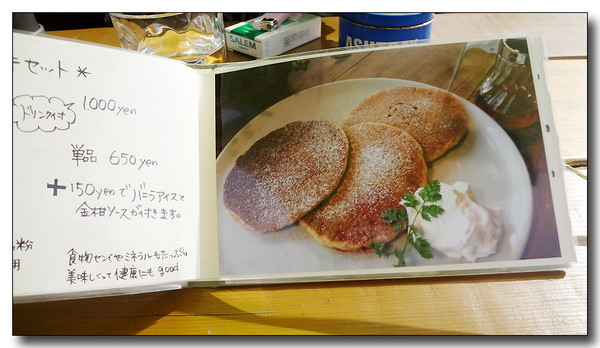 セット*
ドリンク付き
1.000yen
単品 650yen
+150yenでバニラアイスと
金柑ソースが付きます。
粉
用
食物センイやミネラルもたっぷり
美味しくって健康にもgood
SALEM